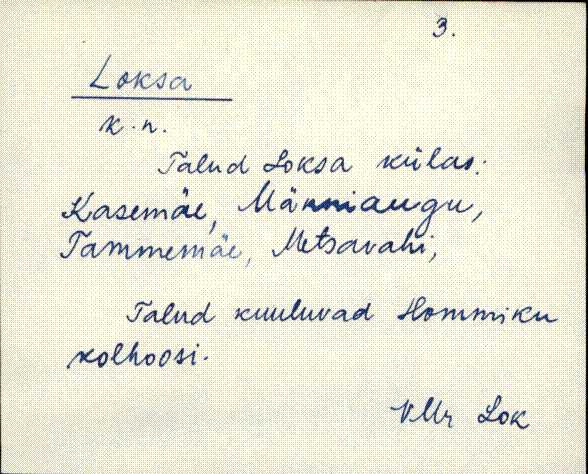 3.
Loksa
k. n.
Talud Loksa külas:
Kasemäe, Männiaugu,
Tammemäe, Metsavahi,
Talud kuuluvad Hommiku
kolhoosi.
VMr Lok